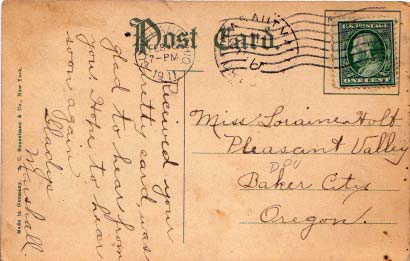 Post Card.
U.S. POSTAGE
ONE CENT
7-PM
1911
6
Miss Loraine Holt
Pleasant Valley
Baker City
Oregon.
Recieved your
pretty card, was
glad to hear from
you. Hope to hear
soon again
Gladys
Marshall.
Made in Germany.
& Co., New York.